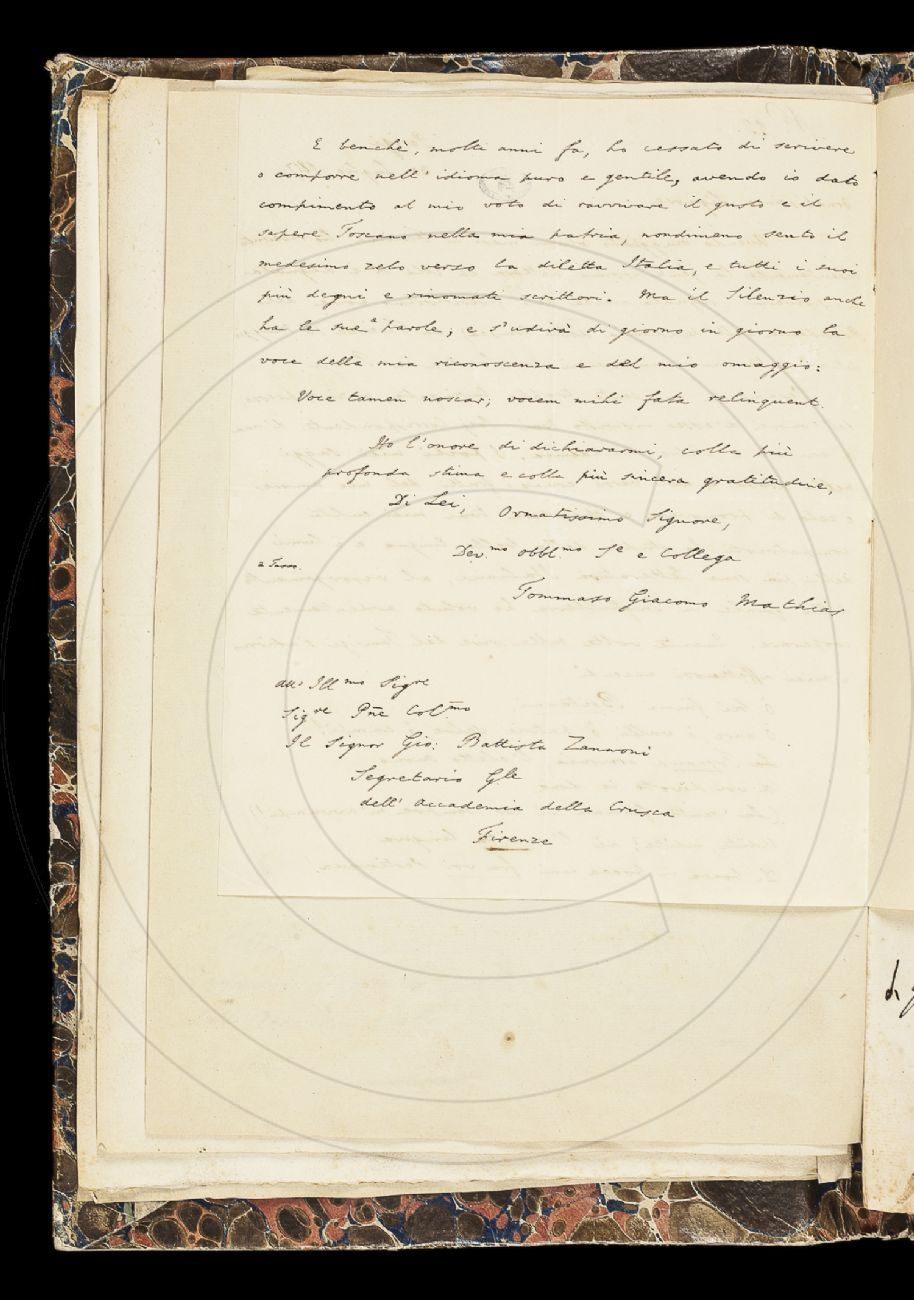 E benchè, molti anni fa, ho cessato di scrivere
o comporre nell' idioma puro e gentile, avendo io dato
compimento al mio voto di ravvivare il gusto e il
sapere Toscano nella mia patria, nondimeno sento il
medesimo zelo verso la diletta Italia, e tutti i suoi
più degni e rinomati scrittori. Ma il Silenzio anche
ha le sue a parole; e s'udirà di giorno in giorno la
voce della mia riconoscenza e del mio omaggio:
Voce tamen noscar; vocem mihi fata relinquent.
Ho l'onore di dichiararmi, colla più
profonda stima e colla più sincera gratitudine,
Di Lei, Ornatissimo Signore,
Dev.mo obbl.mo Se e Collega
a Tasso.
Tommaso Giacomo Mathias
All' Ill.mo Sigre
Sigre Pne Col.mo
Il Signor Gio: Battista Zannoni
Segretario Gle
dell' Accademia della Crusca
Firenze